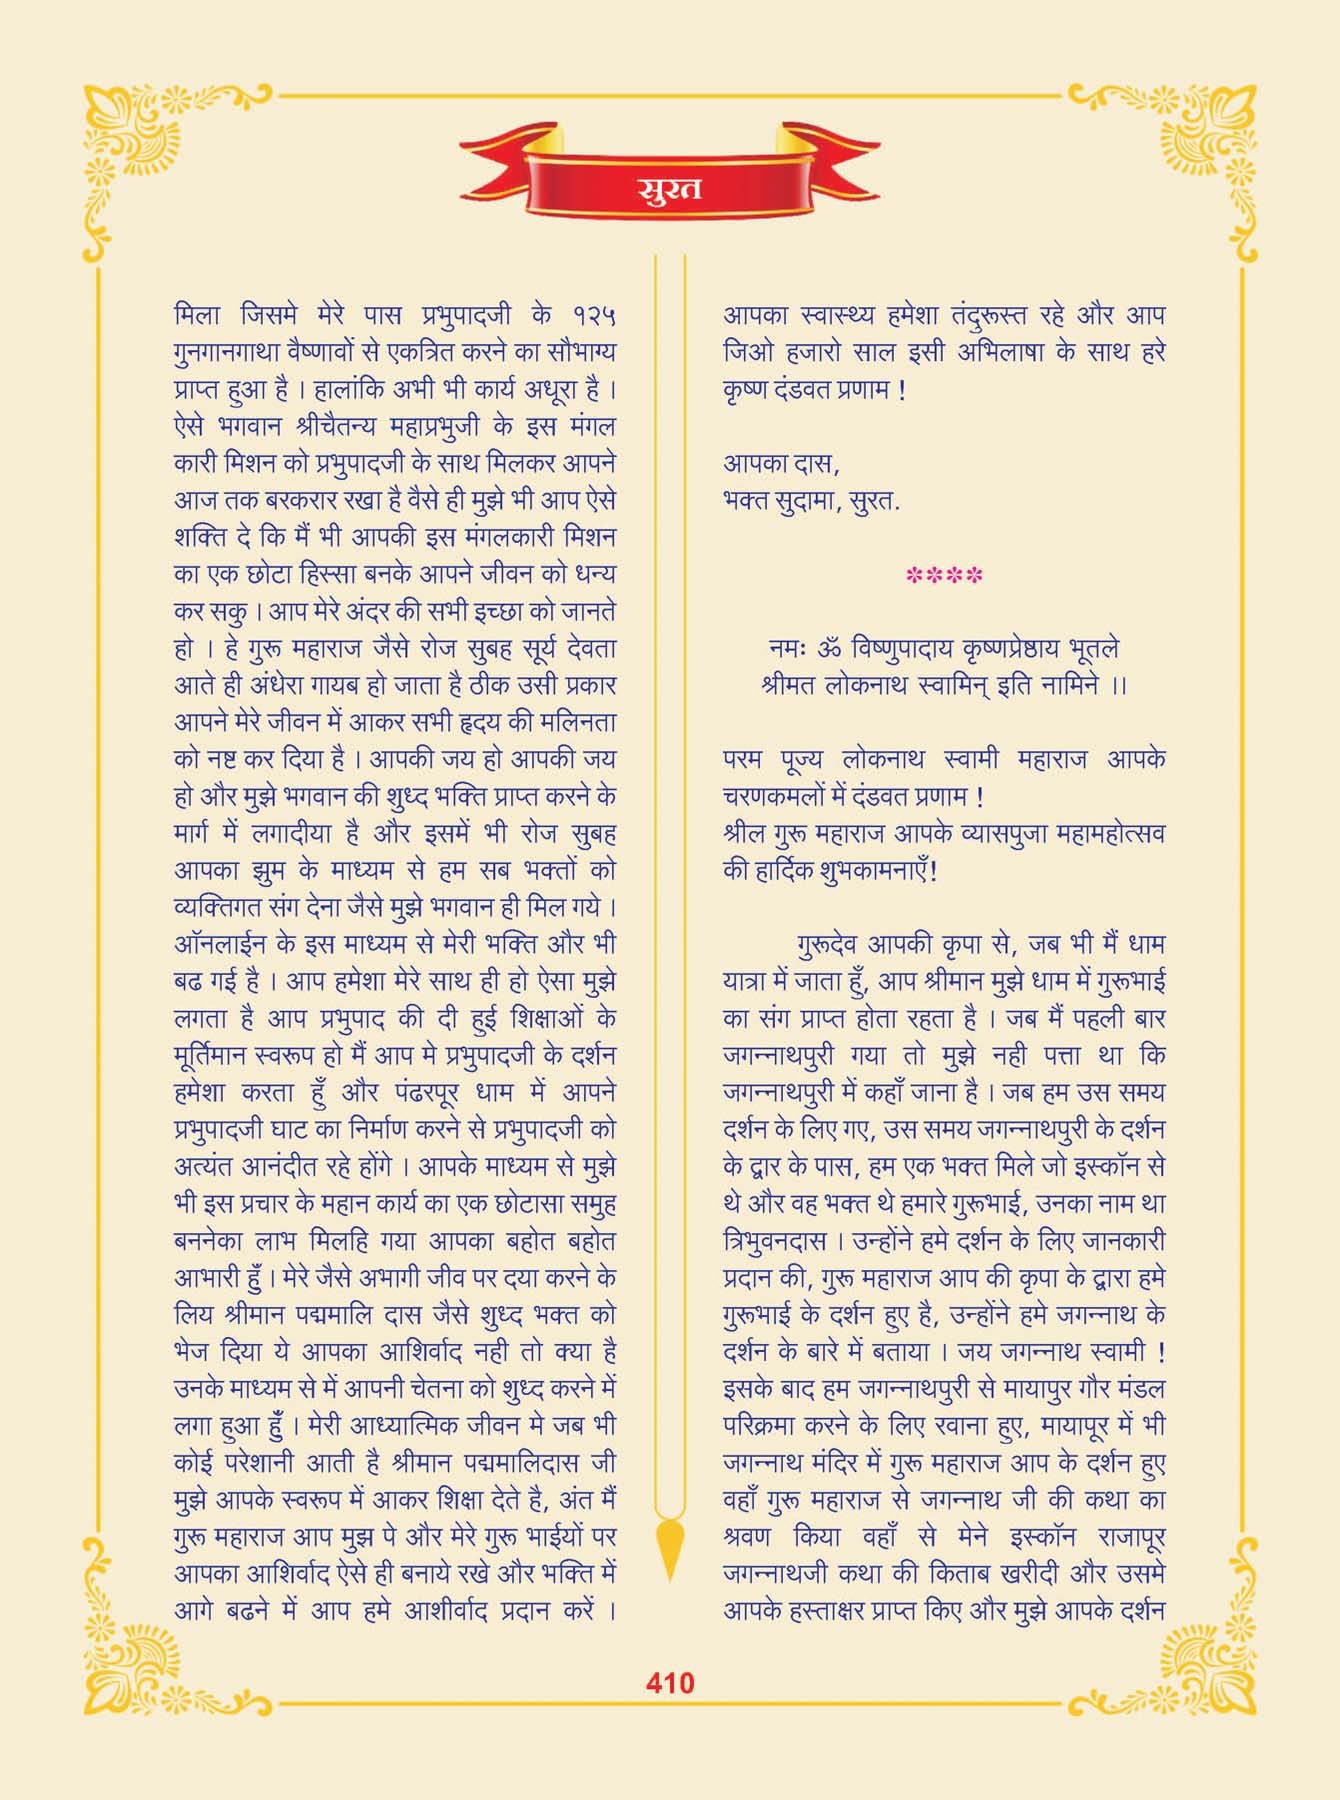 सुरत
मिला जिसमे मेरे पास प्रभुपादजी के १२५
गुनगानगाथा वैष्णावों से एकत्रित करने का सौभाग्य
प्राप्त हुआ है । हालांकि अभी भी कार्य अधूरा है ।
ऐसे भगवान श्रीचैतन्य महाप्रभुजी के इस मंगल
कारी मिशन को प्रभुपादजी के साथ मिलकर आपने
आज तक बरकरार रखा है वैसे ही मुझे भी आप ऐसे
शक्ति दे कि मैं भी आपकी इस मंगलकारी मिशन
का एक छोटा हिस्सा बनके आपने जीवन को धन्य
कर सकु । आप मेरे अंदर की सभी इच्छा को जानते
हो । हे गुरू महाराज जैसे रोज सुबह सूर्य देवता
आते ही अंधेरा गायब हो जाता है ठीक उसी प्रकार
आपने मेरे जीवन में आकर सभी हृदय की मलिनता
को नष्ट कर दिया है । आपकी जय हो आपकी जय
हो और मुझे भगवान की शुध्द भक्ति प्राप्त करने के
मार्ग में लगादीया है और इसमें भी रोज सुबह
आपका झुम के माध्यम से हम सब भक्तों को
व्यक्तिगत संग देना जैसे मुझे भगवान ही मिल गये ।
ऑनलाईन के इस माध्यम से मेरी भक्ति और भी
बढ गई है । आप हमेशा मेरे साथ ही हो ऐसा मुझे
लगता है आप प्रभुपाद की दी हुई शिक्षाओं के
मूर्तिमान स्वरूप हो मैं आप मे प्रभुपादजी के दर्शन
हमेशा करता हूँ और पंढरपूर धाम में आपने
प्रभुपादजी घाट का निर्माण करने से प्रभुपादजी को
अत्यंत आनंदीत रहे होंगे । आपके माध्यम से मुझे
भी इस प्रचार के महान कार्य का एक छोटासा समुह
बननेका लाभ मिलहि गया आपका बहोत बहोत
आभारी हुँ । मेरे जैसे अभागी जीव पर दया करने के
लिय श्रीमान पद्ममालि दास जैसे शुध्द भक्त को
भेज दिया ये आपका आशिर्वाद नही तो क्या है
उनके माध्यम से में आपनी चेतना को शुध्द करने में
लगा हुआ हुँ । मेरी आध्यात्मिक जीवन मे जब भी
कोई परेशानी आती है श्रीमान पद्ममालिदास जी
मुझे आपके स्वरूप में आकर शिक्षा देते है, अंत मैं
गुरू महाराज आप मुझ पे और मेरे गुरू भाईयों पर
आपका आशिर्वाद ऐसे ही बनाये रखे और भक्ति में
आगे बढने में आप हमे आशीर्वाद प्रदान करें ।
आपका स्वास्थ्य हमेशा तंदुरूस्त रहे और आप
जिओ हजारो साल इसी अभिलाषा के साथ हरे
कृष्ण दंडवत प्रणाम !
आपका दास,
भक्त सुदामा, सुरत.
****
नमः ॐ विष्णुपादाय कृष्णप्रेष्ठाय भूतले
श्रीमत लोकनाथ स्वामिन् इति नामिने ।।
परम पूज्य लोकनाथ स्वामी महाराज आपके
चरणकमलों में दंडवत प्रणाम !
श्रील गुरू महाराज आपके व्यासपुजा महामहोत्सव
की हार्दिक शुभकामनाएँ!
गुरूदेव आपकी कृपा से, जब भी मैं धाम
यात्रा में जाता हूँ, आप श्रीमान मुझे धाम में गुरूभाई
का संग प्राप्त होता रहता है । जब मैं पहली बार
जगन्नाथपुरी गया तो मुझे नही पत्ता था कि
जगन्नाथपुरी में कहाँ जाना है । जब हम उस समय
दर्शन के लिए गए, उस समय जगन्नाथपुरी के दर्शन
के द्वार के पास, हम एक भक्त मिले जो इस्कॉन से
थे और वह भक्त थे हमारे गुरूभाई, उनका नाम था
त्रिभुवनदास । उन्होंने हमे दर्शन के लिए जानकारी
प्रदान की, गुरू महाराज आप की कृपा के द्वारा हमे
गुरूभाई के दर्शन हुए है, उन्होंने हमे जगन्नाथ के
दर्शन के बारे में बताया । जय जगन्नाथ स्वामी !
इसके बाद हम जगन्नाथपुरी से मायापुर गौर मंडल
परिक्रमा करने के लिए रवाना हुए, मायापूर में भी
जगन्नाथ मंदिर में गुरू महाराज आप के दर्शन हुए
वहाँ गुरू महाराज से जगन्नाथ जी की कथा का
श्रवण किया वहाँ से मेने इस्कॉन राजापूर
जगन्नाथजी कथा की किताब खरीदी और उसमे
आपके हस्ताक्षर प्राप्त किए और मुझे आपके दर्शन
410